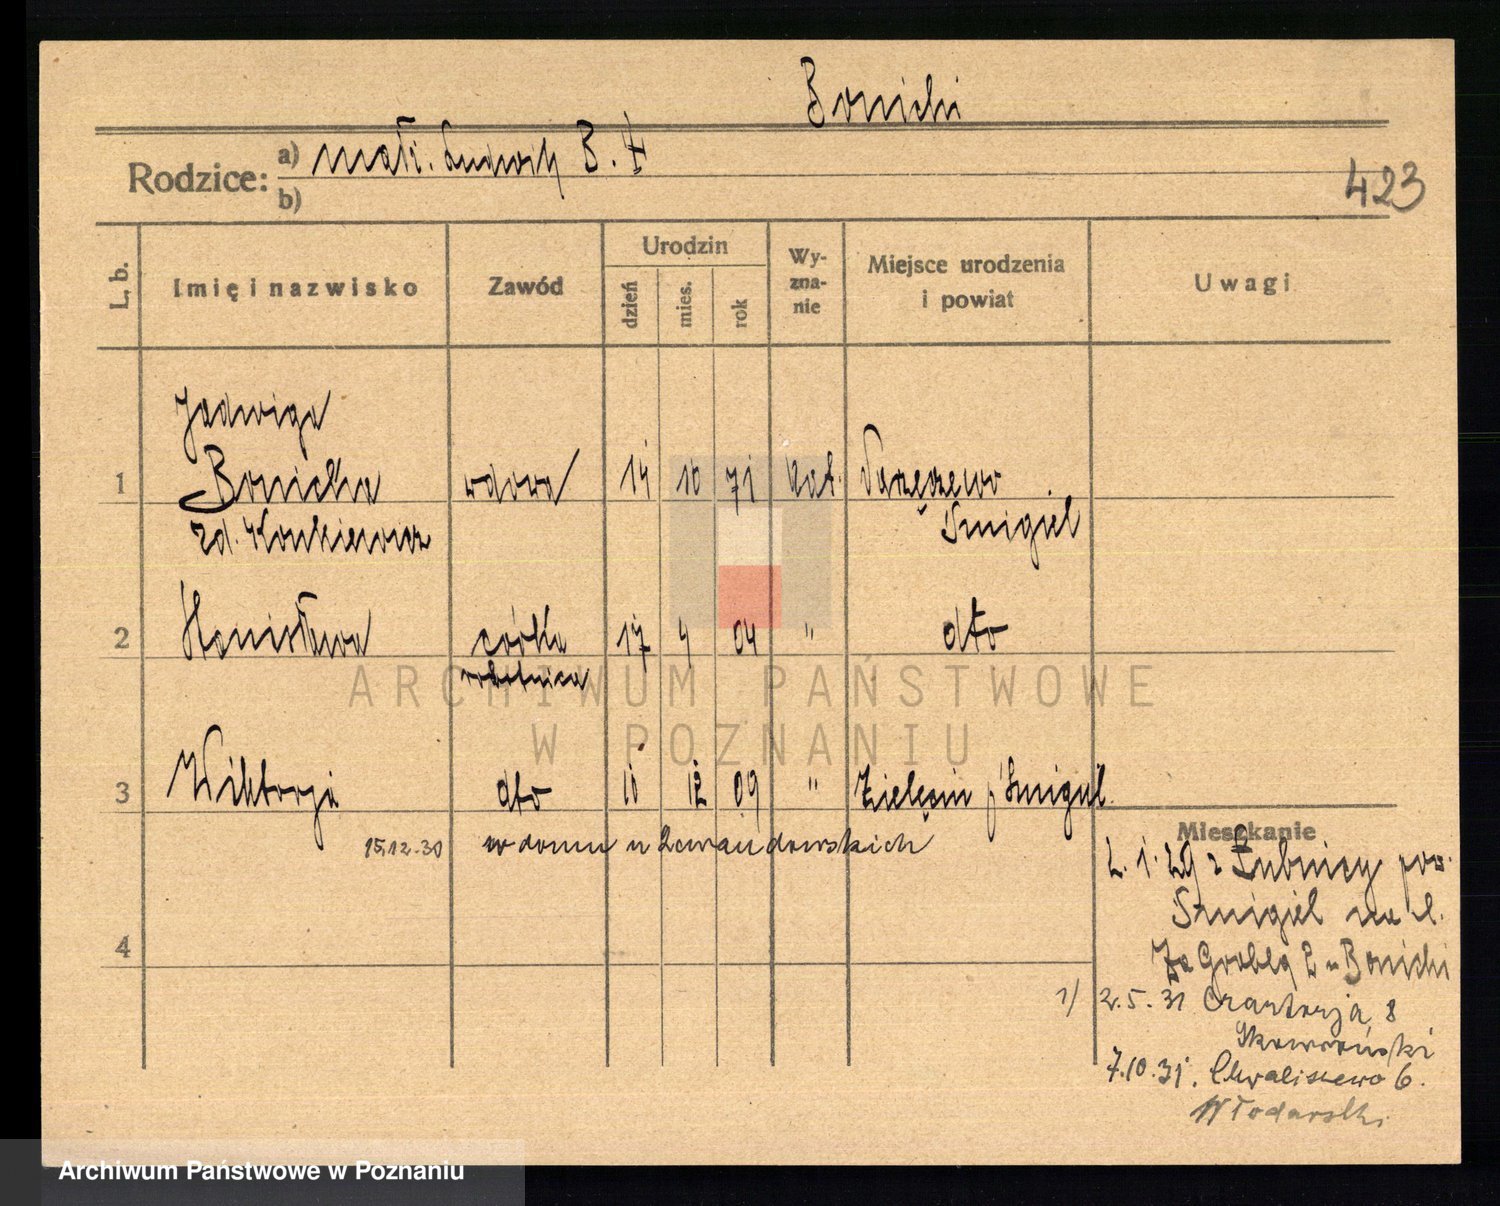 Bonicki
Rodzice: a) małż. Ludwik B. †
b)
423
L. b.
Imię i nazwisko
Zawód
Urodzin
dzień
mies.
rok
Wy-
zna-
nie
Miejsce urodzenia
i powiat
Uwagi
Jadwiga
1 Bonicka wdowa 14 10 71 kat.
zd. Konkiewicz Śmigiel
2 Stanisława córka 17 4 04 " dto
robotnica
3 Wiktorja dto 10 12 09 " Śmigiel
15.12.30 w domu u Lewandowskich
4
Mieszkanie
2. 1. 29 z Łubnicy pow.
Śmigiel na ul.
Za Groblą 2 u Bonicki
1) 2.5.31 Czartorja 8
Skoworoński
7.10.31. Chwaliszewo 6.
Włodarski
ARCHIWUM PAŃSTWOWE
W POZNANIU
Archiwum Państwowe w Poznaniu